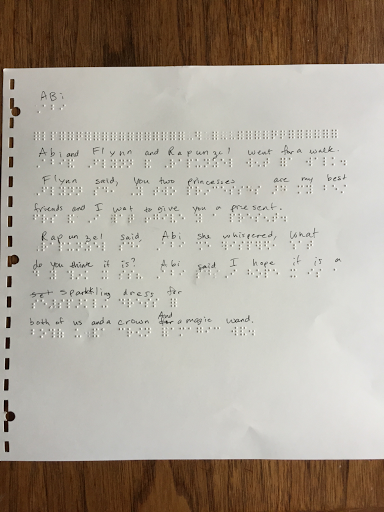 ABi
Abi and Flynn and Rapunzel went for a walk.
Flynn said, you two princesses are my best
friends and I wat to give you a present.
Rapunzel said, Abi she whispered, What
do you think it is? Abi said I hope it is a
sparkling dress for
both of us and a crown And for a magic wand.